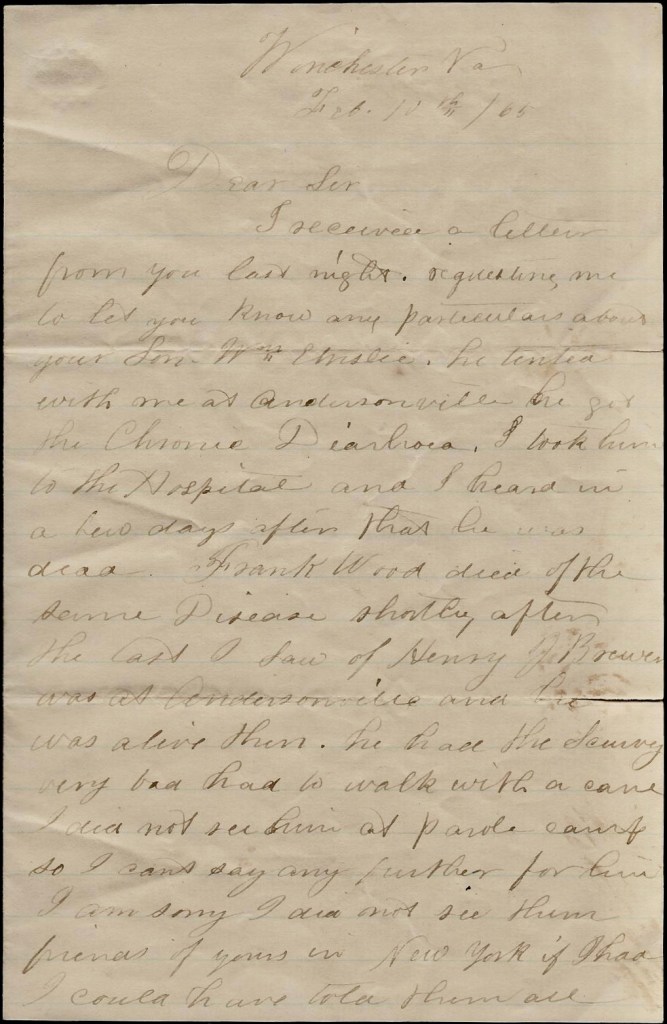 Winchester Va
Feb. 10th /65
Dear Sir
I received a letter
from you last night. requesting me
to let you know any particulars about
your Son Wm Elmslie. he tented
with me at Andersonville he got
the Chronic Diarhoea. I took him
to the Hospital and I heard in
a few days after that he was
dead. Frank Wood died of the
same Disease shortly after
the last I saw of Henry Brewer
was at Andersonville and he
was alive then. he had the Scurvy
very bad had to walk with a cane
I did not see him at parole camp
so I cant say any further for him
I am sorry I did not see them
friends of yours in New York if I had
I could have told them all